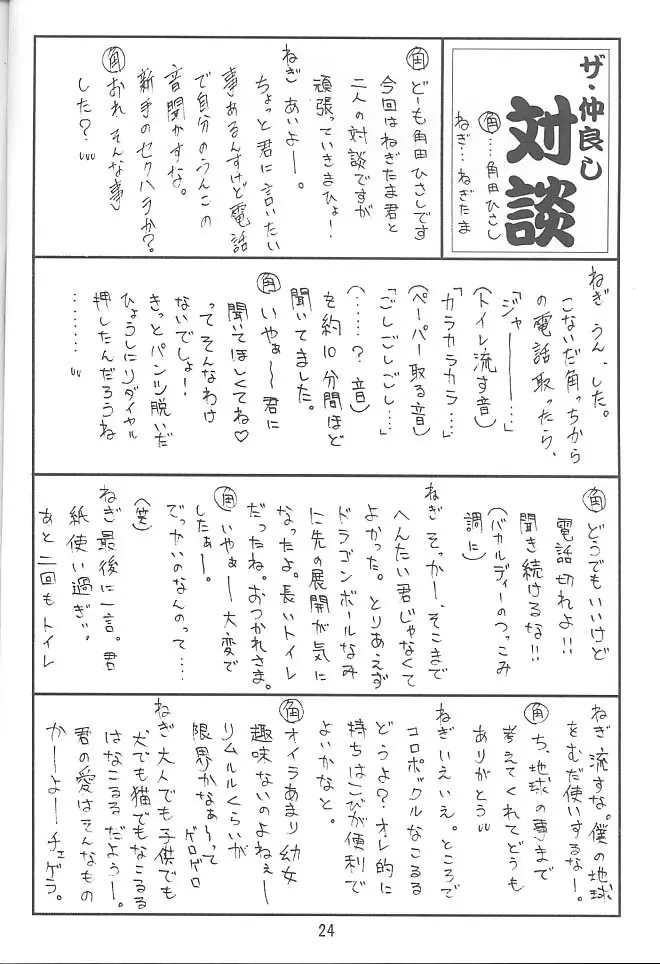 ザ・仲良し
対談
㊈…角田ひさし
ねぎ…ねぎたま
角 どーも角田ひさしです
今回はねぎたま君と
二人の対談ですが
頑張っていきまひょ!
ねぎ あいよー。
ちょっと君に言いたい
事あるんすけど電話
で自分のうんこの
音聞かすな。
新手のセクハラか?
角 おれそんな事
した?
ねぎ うん、した。
こないだ角っちから
の電話取ったら、
「ジャーーー…」
(トイレ流す音)
「カラカラカラ…」
(ペーパー取る音)
「ごしごしごし…」
(……?音)
を約10分間ほど
聞いてました。
角 いやぁ〜君に
聞いてほしくてね♡
ってそんなわけ
ないでしょ!
きっとパンツ脱いだ
ひょうしにリダイヤル
押したんだろうね
………
角 どうでもいいけど
電話切れよ!!
聞き続けるな!!
(バカルディーのつっこみ
調に)
ねぎ そっかー、そこまで
へんたい君じゃなくて
よかった。とりあえず
ドラゴンボールなみ
に先の展開が気に
なったよ。長いトイレ
だったね。おつかれさま。
角 いやぁー大変で
したぁー。
でっかいのなんのって……
(笑)
ねぎ 最後に一言。君
紙使い過ぎ。
あと二回もトイレ
ねぎ 流すな。僕の地球
をむだ使いするなー。
角 ち、地球の事まで
考えてくれてどうも
ありがとう
ねぎ いえいえ。ところで
コロポックルなこるる
どうよ?オレ的に
持ちはこびが便利で
よいかなと。
角 オイラあまり幼女
趣味ないのよねぇー
リムルルくらいが
限界かなぁ〜って
ゲロゲロ
ねぎ 大人でも子供でも
犬でも猫でもなこるる
はなこるるだよぅー。
君の愛はそんなもの
かーよーチェゲラ。
24